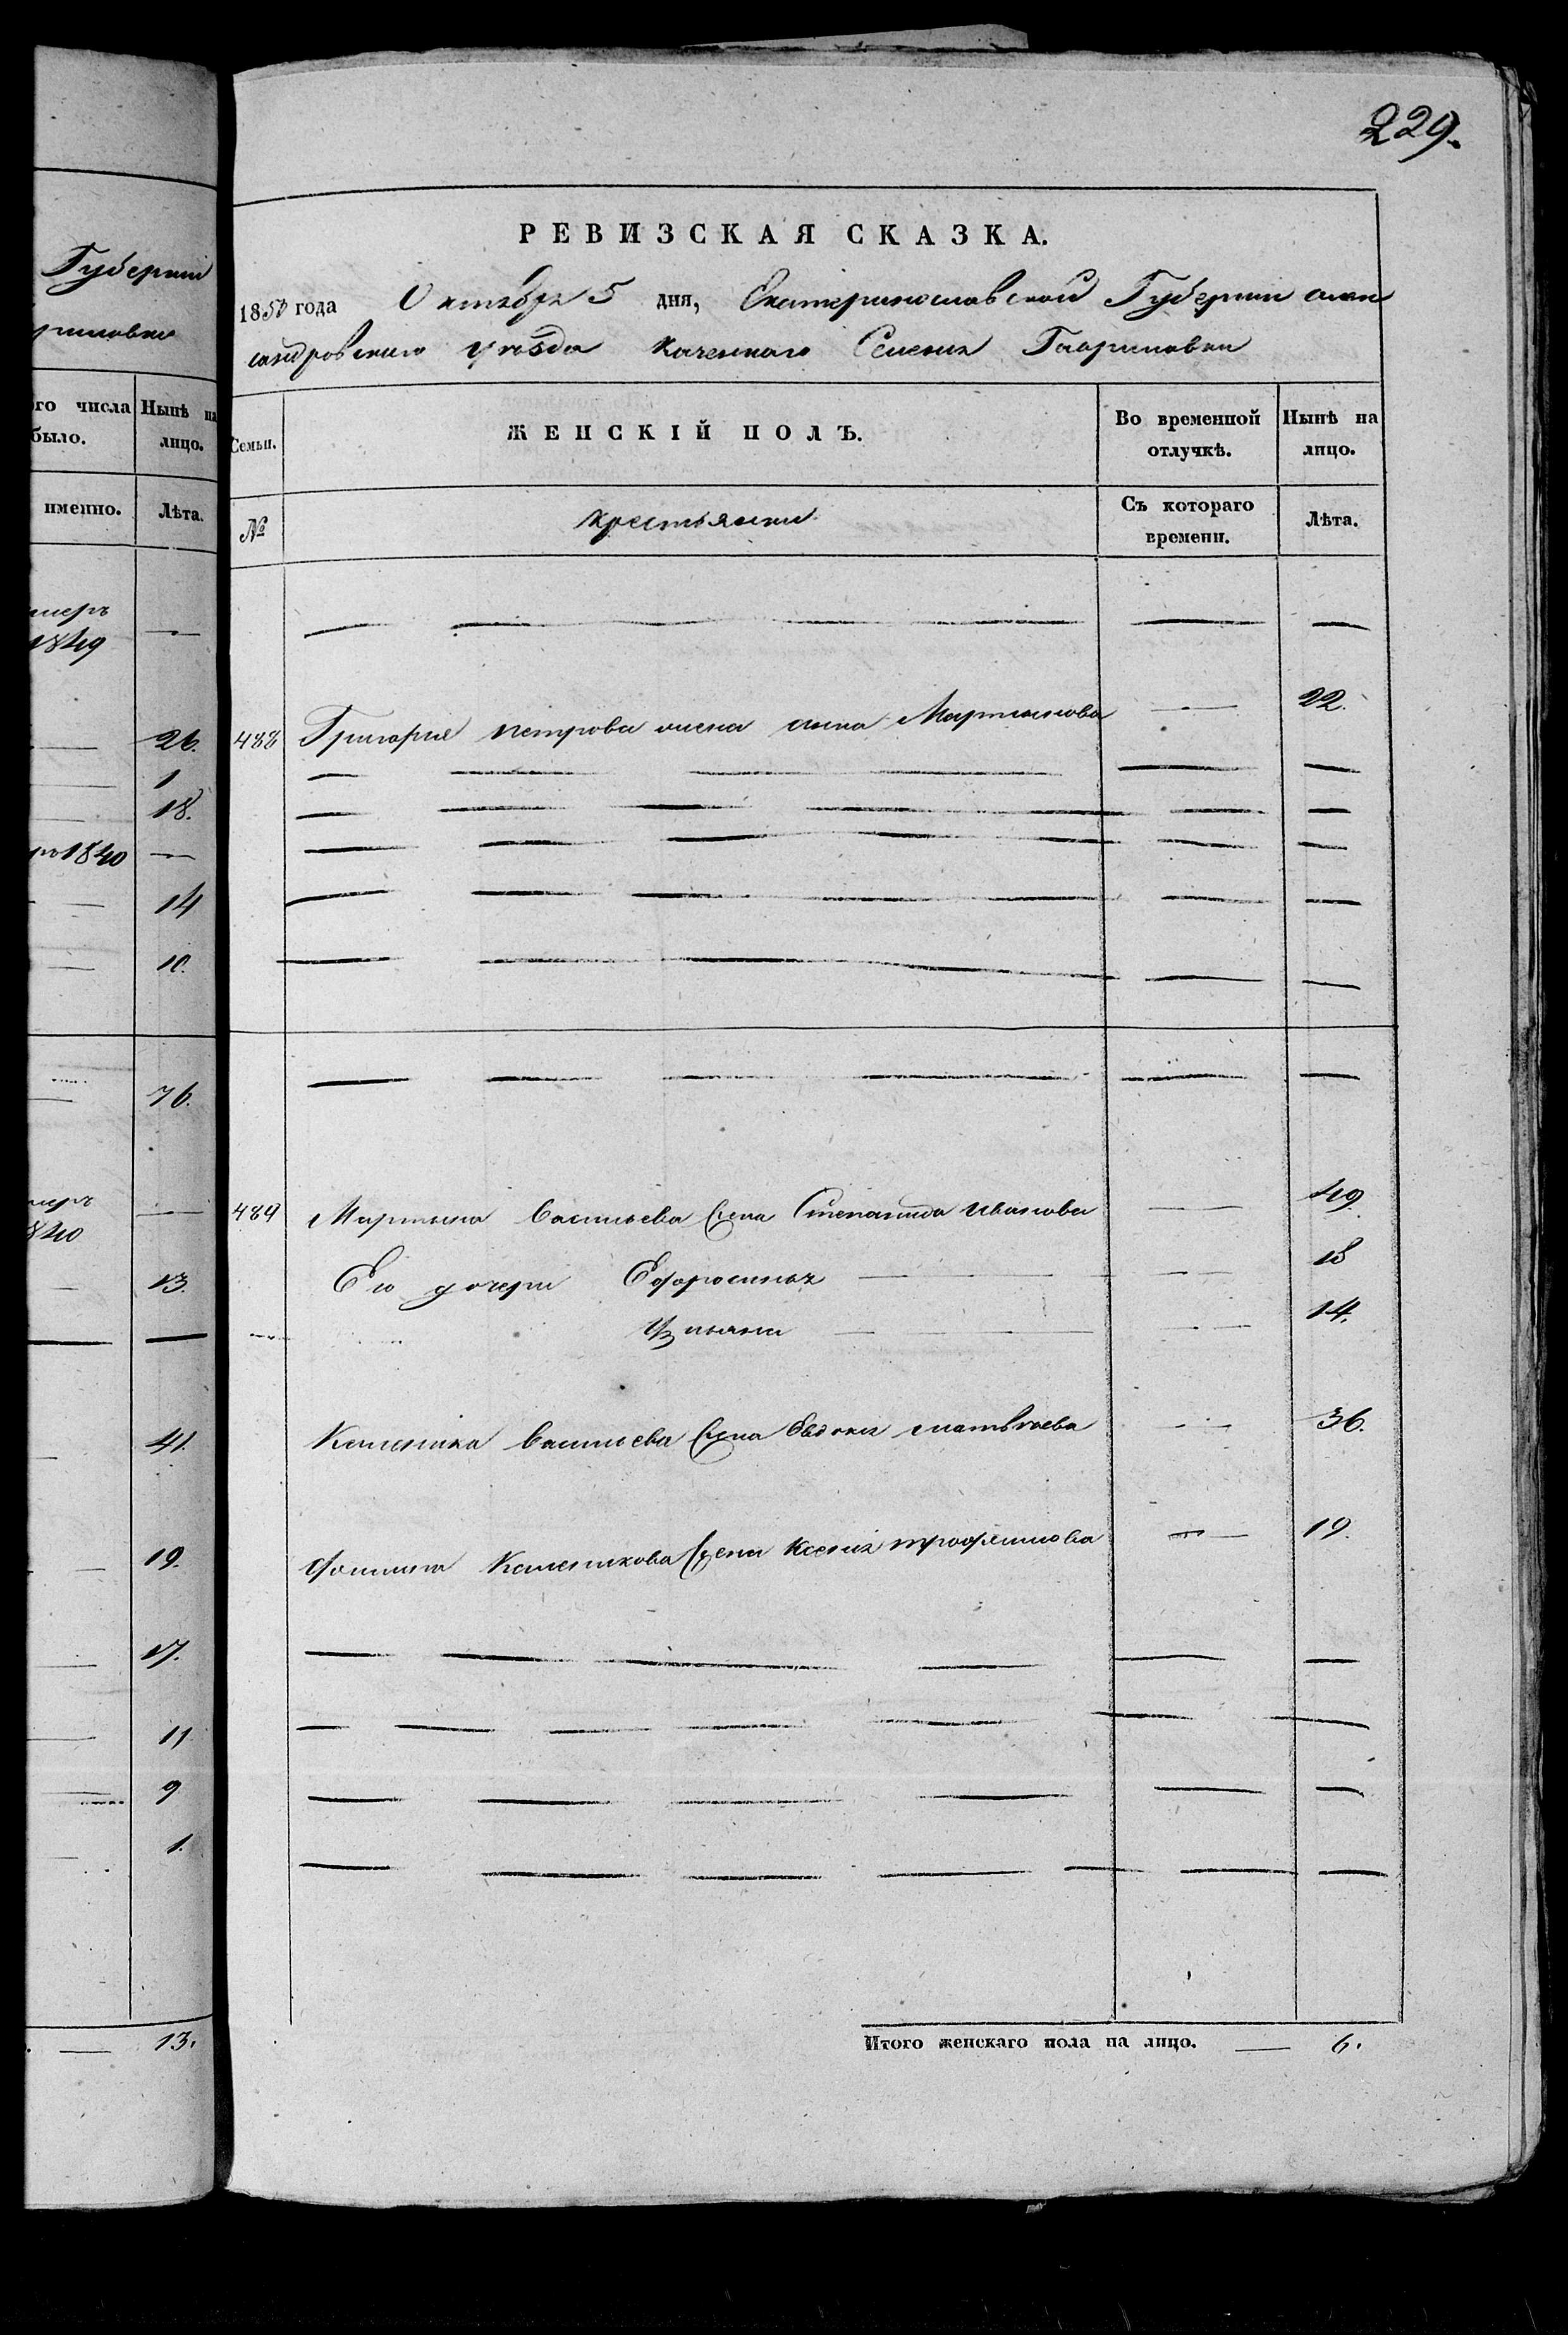 Губерніи
риловки
ого числа Нынѣ на
было. лицо.
именно. Лѣта.
умеръ
1849 —
— 26.
— 1
— 18.
1840 —
— 14
— 10.
— 76.
умеръ —
1840
— 13.
— —
— 41.
— 19.
— 17.
— 11
— 9
— 1.
— 13.
229.
РЕВИЗСКАЯ СКАЗКА.
1850 года Октября 5 дня, Екатеринославской Губерніи алек
сандровскаго уѣзда казеннаго Селенія Гавриловки
Семьи. ЖЕНСКІЙ ПОЛЪ. Во временной отлучкѣ. Нынѣ на лицо.
№ крестьянки Съ котораго времени. Лѣта.
— — — — — — —
488 Григорія петрова жена анна Мартынова — 22.
— — — — — —
— — — — — —
— — — — — —
— — — — — —
— — — — — —
— — — — — —
489 Мартына Васильева жена Степанида иванова — 49.
Его дочери Ефросинья — — — 18
Ульяна — — — 14.
Калиника Васильева жена Евдокія матвѣева — 36.
Фомина Калиникова жена Ксенія трофимова — 19.
— — — — — —
— — — — — — —
— — — — — —
— — — — — — —
Итого женскаго пола на лицо. — 6.